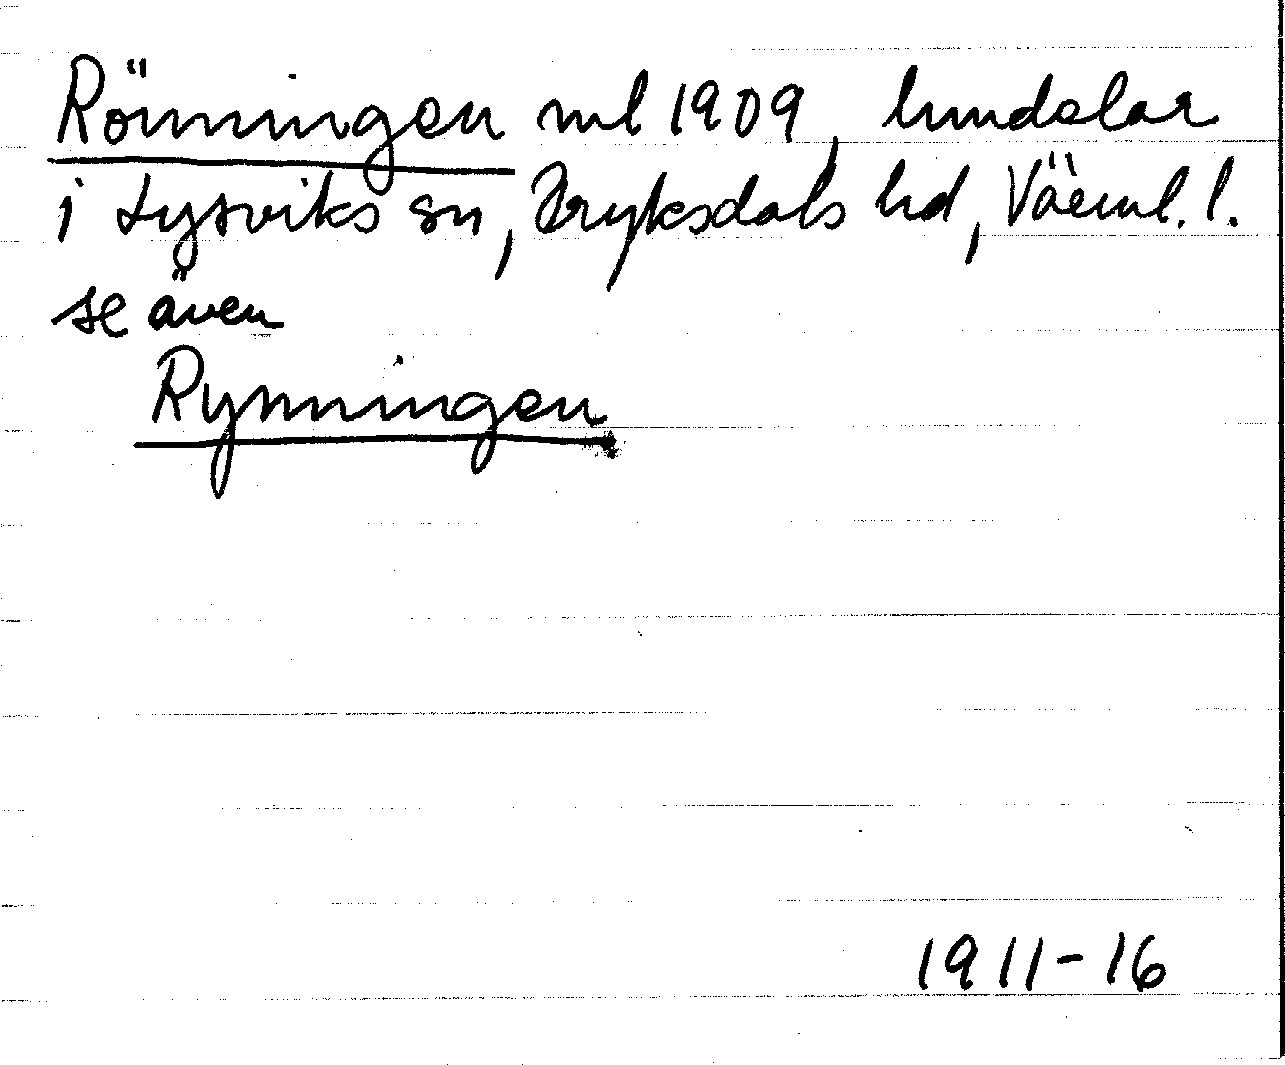 Rönningen ml 1909, hundalar
i Lysviks sn, Fryksdals hd, Värml. l.
se även
Rynningen
1911-16